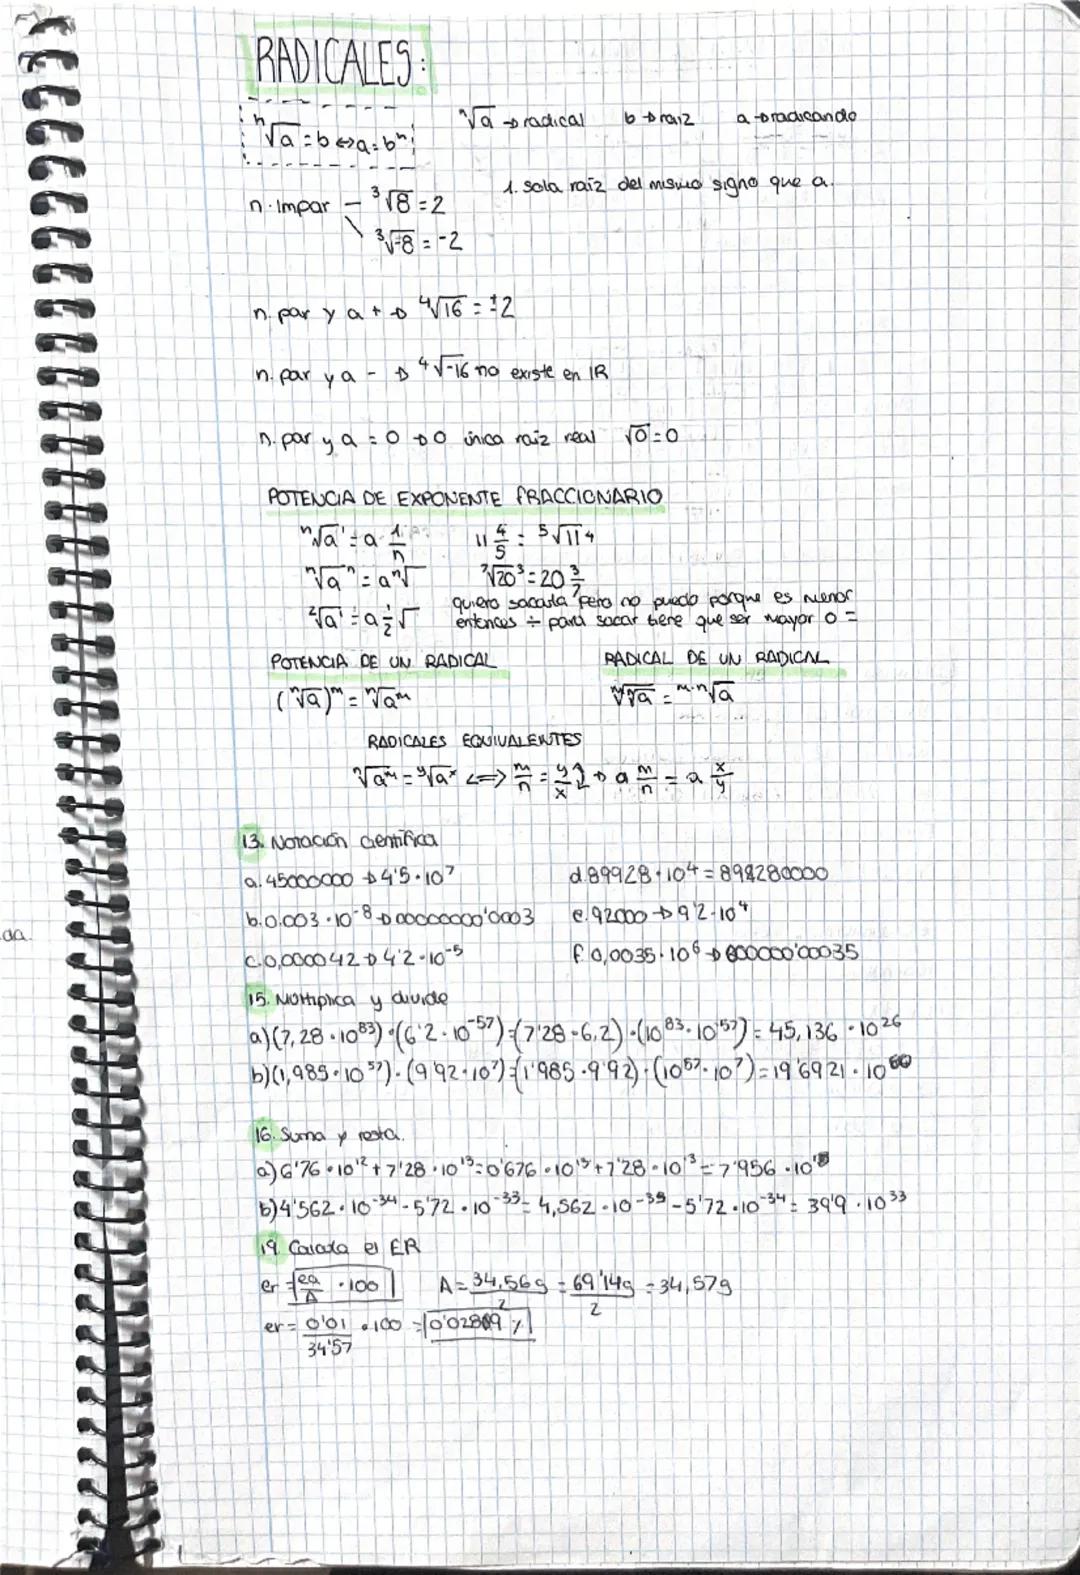 RADICALES:
ⁿ√a = b ⇔ a = bⁿ
ⁿ√a → radical b → raíz a → radicando
n. Impar — ³√8 = 2 1. sola raíz del mismo signo que a.
\ ³√-8 = -2
n. par y a + → ⁴√16 = ±2
n. par y a - → ⁴√-16 no existe en ℝ
n. par y a = 0 → 0 única raiz real √0 = 0
POTENCIA DE EXPONENTE FRACCIONARIO
ⁿ√a¹ = a 1/n 11 4/5 = ⁵√11⁴
ⁿ√aⁿ = a ⁿ√ ⁷√20³ = 20 3/7
²√a¹ = a 1/2 √ quiero sacarla pero no puedo porque es menor
entonces ÷ para sacar tiene que ser mayor o =
POTENCIA DE UN RADICAL RADICAL DE UN RADICAL
(ⁿ√a)ᵐ = ⁿ√aᵐ ᵐ√ⁿ√a = ᵐ·ⁿ√a
RADICALES EQUIVALENTES
ⁿ√aᵐ = ʸ√aˣ <=> m/n = y/x ↕ → a m/n = a x/y
13. Notación científica
a. 45000000 → 4'5 · 10⁷ d. 89928 · 10⁴ = 899280000
b. 0.003 · 10⁻⁸ → 00000000'0003 e. 92000 → 9'2 · 10⁴
c. 0,000042 → 4'2 · 10⁻⁵ f. 0,0035 · 10⁶ → 000000'00035
15. Multiplica y divide
a) (7,28 · 10⁸³) · (6'2 · 10⁻⁵⁷) = (7'28 · 6,2) · (10⁸³ · 10⁻⁵⁷) = 45,136 · 10²⁶
b) (1,985 · 10⁵⁷) · (9'92 · 10⁷) = (1'985 · 9'92) · (10⁵⁷ · 10⁷) = 19'6921 · 10⁶⁰
16. Suma y resta.
a) 6'76 · 10¹² + 7'28 · 10¹³ = 0'676 · 10¹³ + 7'28 · 10¹³ = 7'956 · 10¹³
b) 4'562 · 10⁻³⁴ - 5'72 · 10⁻³³ = 4,562 · 10⁻³⁵ - 5'72 · 10⁻³⁴ = 39'9 · 10³³
19. Calcula el ER
er = ea/A · 100 A = 34,56g/2 = 69'14g/2 = 34,57g
er = 0'01/34'57 · 100 = 0'02889 %